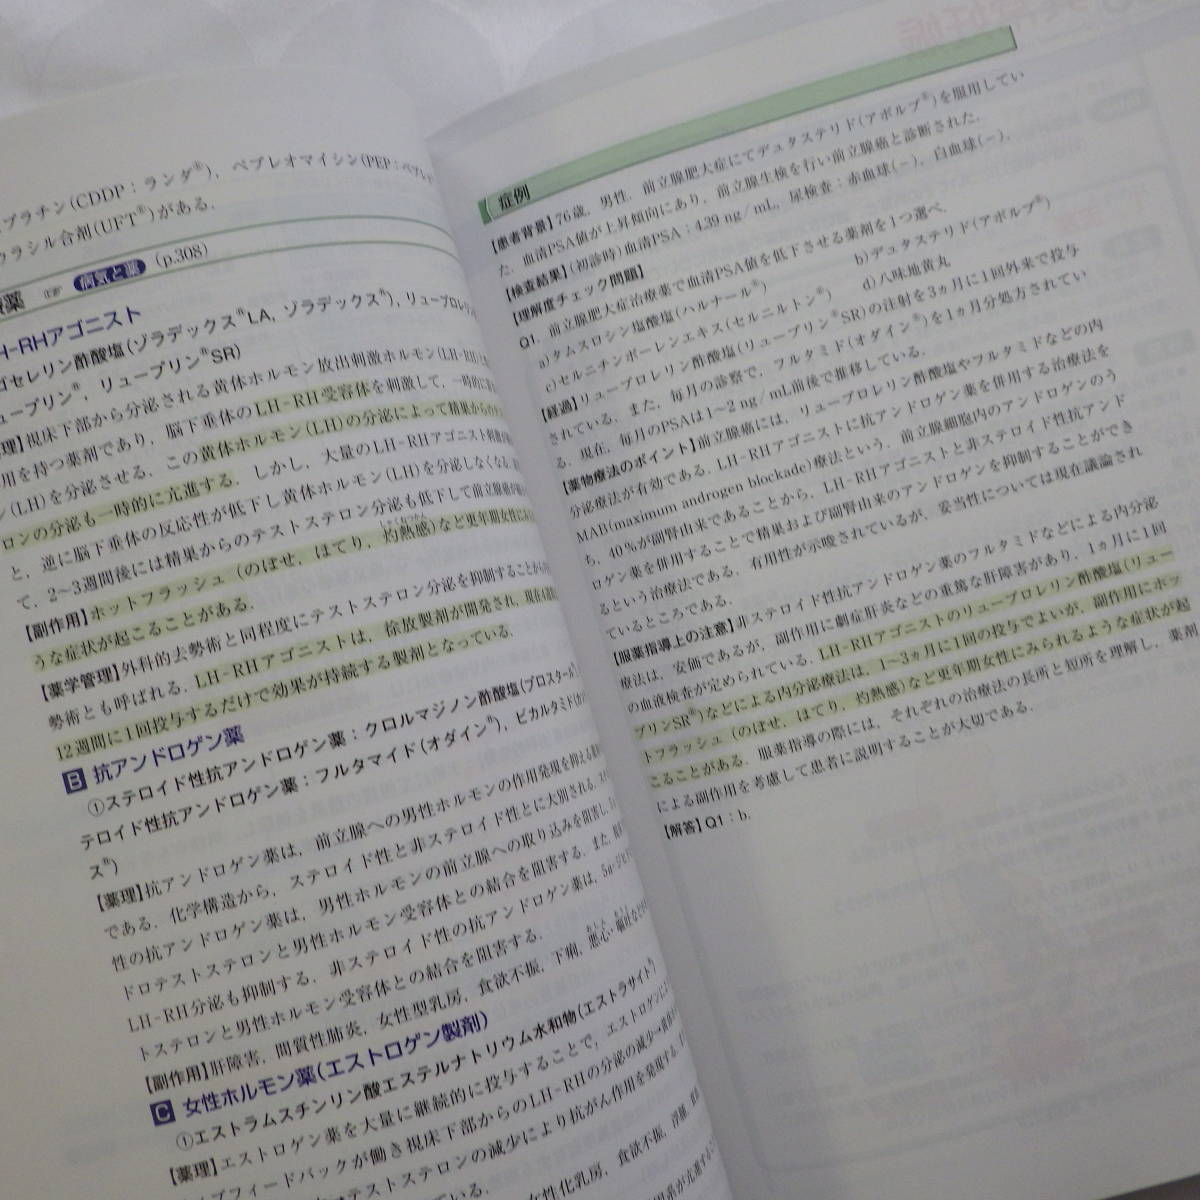 プラチン(CDDP：ランダ®)，ペプレオマイシン(PEP：ペプレオ
ウラシル合剤(UFT®)がある．
薬 ☞ 病気と薬 (p.308)
H-RHアゴニスト
ゴセレリン酢酸塩(ゾラデックス®LA, ゾラデックス®), リュープロレリン
ュープリン®, リュープリン®SR)
理】視床下部から分泌される黄体ホルモン放出刺激ホルモン(LH-RH)と
用を持つ薬剤であり，脳下垂体のLH-RH受容体を刺激して，一時的に
ン(LH)を分泌させる．この黄体ホルモン(LH)の分泌によって精巣からの
ロンの分泌も一時的に亢進する．しかし，大量のLH-RHアゴニスト刺激が
と，逆に脳下垂体の反応性が低下し黄体ホルモン(LH)を分泌しなくなる．
て，2〜3週間後には精巣からのテストステロン分泌も低下して前立腺癌が
【副作用】ホットフラッシュ（のぼせ，ほてり，灼熱感）など更年期女性に
うな症状が起こることがある．
【薬学管理】外科的去勢術と同程度にテストステロン分泌を抑制することから
勢術とも呼ばれる．LH-RHアゴニストは，徐放製剤が開発され，現在
12週間に1回投与するだけで効果が持続する製剤となっている．
B 抗アンドロゲン薬
①ステロイド性抗アンドロゲン薬：クロルマジノン酢酸塩(プロスタール®)
テロイド性抗アンドロゲン薬：フルタマイド(オダイン®)，ビカルタミド(カソデック
ス®)
【薬理】抗アンドロゲン薬は，前立腺への男性ホルモンの作用発現を抑える
である．化学構造から，ステロイド性と非ステロイド性とに大別される．
性の抗アンドロゲン薬は，男性ホルモンの前立腺への取り込みを阻害し，
ドロテストステロンと男性ホルモン受容体との結合を阻害する．また，
LH-RH分泌も抑制する．非ステロイド性の抗アンドロゲン薬は，5α-ジヒ
トステロンと男性ホルモン受容体との結合を阻害する．
【副作用】肝障害，間質性肺炎，女性型乳房，食欲不振，下痢，悪心・嘔吐など
C 女性ホルモン薬(エストロゲン製剤)
①エストラムスチンリン酸エステルナトリウム水和物(エストラサイト®)
【薬理】エストロゲン薬を大量に継続的に投与することで，エストロゲンによ
ィブフィードバックが働き視床下部からのLH-RHの分泌の減少→
→テストステロンの減少により抗がん作用を発現する．
ている．
女性化乳房，食欲不振，浮腫，
症例
【患者背景】76歳，男性．前立腺肥大症にてデュタステリド(アボルブ®)を服用してい
た．血清PSA値が上昇傾向にあり，前立腺生検を行い前立腺癌と診断された．
【検査結果】(初診時)血清PSA：4.39 ng/mL，尿検査：赤血球(−)，白血球(−)．
【理解度チェック問題】
Q1．前立腺肥大症治療薬で血清PSA値を低下させる薬剤を1つ選べ．
a)タムスロシン塩酸塩(ハルナール®) b)デュタステリド(アボルブ®)
c)セルニチンポーレンエキス(セルニルトン®) d)八味地黄丸
【経過】リュープロレリン酢酸塩(リュープリン®SR)の注射を3ヵ月に1回外来で投与
されている．また，毎月の診察で，フルタミド(オダイン®)を1ヵ月分処方されてい
る．現在，毎月のPSAは1〜2 ng/mL前後で推移している．
【薬物療法のポイント】前立腺癌には，リュープロレリン酢酸塩やフルタミドなどの内
分泌療法が有効である．LH-RHアゴニストに抗アンドロゲン薬を併用する治療法を
MAB(maximum androgen blockade)療法という．前立腺細胞内のアンドロゲンのう
ち，40%が副腎由来であることから，LH-RHアゴニストと非ステロイド性抗アンド
ロゲン薬を併用することで精巣および副腎由来のアンドロゲンを抑制することができ
るという治療法である．有用性が示唆されているが，妥当性については現在議論され
ているところである．
【服薬指導上の注意】非ステロイド性抗アンドロゲン薬のフルタミドなどによる内分泌
療法は，安価であるが，副作用に劇症肝炎などの重篤な肝障害があり，1ヵ月に1回
の血液検査が定められている．LH-RHアゴニストのリュープロレリン酢酸塩(リュー
プリンSR®)などによる内分泌療法は，1〜3ヵ月に1回の投与でよいが，副作用にホッ
トフラッシュ（のぼせ，ほてり，灼熱感）など更年期女性にみられるような症状が起
こることがある．服薬指導の際には，それぞれの治療法の長所と短所を理解し，薬剤
による副作用を考慮して患者に説明することが大切である．
【解答】Q1：b．